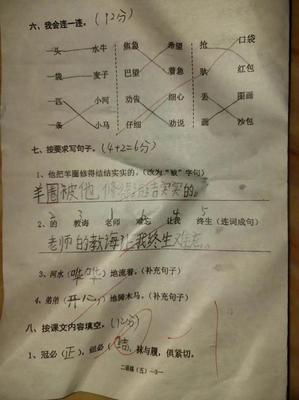 六、我会连一连。(12分)
头 水牛 焦急 希望 抢 口袋
袋 麦子 巴望 着急 驮 红包
匹 小河 劝告 细心 丢 面
条 小马 仔细 劝说 面 沙包
七、按要求写句子。(4+2=6分)
1、他把羊圈修得结结实实的。(改为“被”字句)
羊圈被他修得结结实实的。
2 3 1 6 4 5
2、的 教诲 老师 难忘 让我 终生 (连词成句)
老师的教诲让我终生难忘。
3、河水(哗哗)地流着。(补充句子)
4、弟弟(开心)地骑木马。(补充句子)
八、按课文内容填空。(12分)
1、冠必(正),纽必(结),袜与履,俱紧切。
二语练(五)—3—